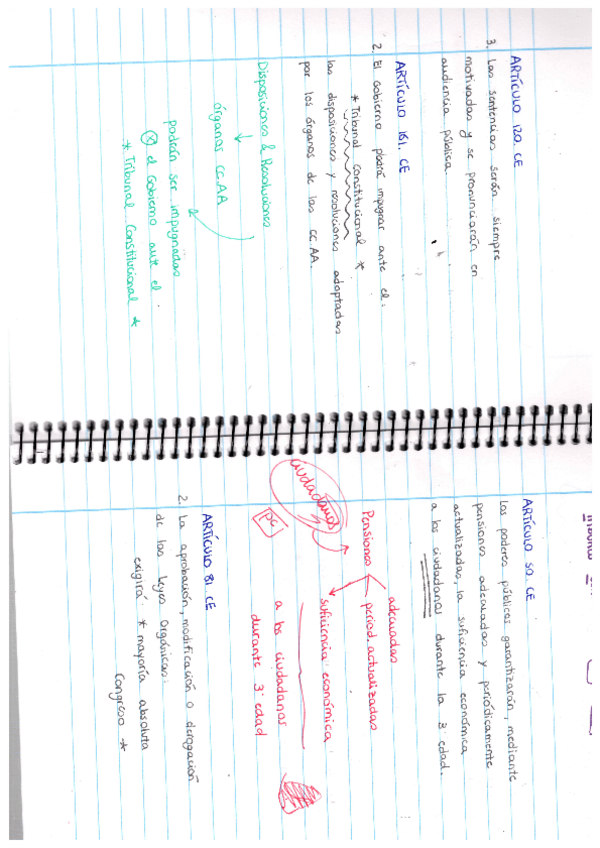 ARTÍCULO 120. CE
3. Las sentencias serán siempre
motivadas y se pronunciarán en
audiencia pública.
ARTÍCULO 161. CE
2. El Gobierno podrá impugnar ante el:
* Tribunal Constitucional *
las disposiciones y resoluciones adoptadas
por los órganos de las CC.AA.
Disposiciones & Resoluciones
órganos CC.AA
podrán ser impugnadas
x el Gobierno ante el:
* Tribunal Constitucional *
ARTÍCULO 50. CE
Los poderes públicos garantizarán, mediante
pensiones adecuadas y periódicamente
actualizadas, la suficiencia económica
a los ciudadanos durante la 3ª edad.
adecuadas
Pensiones
period. actualizadas
ciudadanos
suficiencia económica
a los ciudadanos
durante 3ª edad
ARTÍCULO 81. CE
2. La aprobación, modificación o derogación
de las leyes Orgánicas:
exigirá: * mayoría absoluta
Congreso *